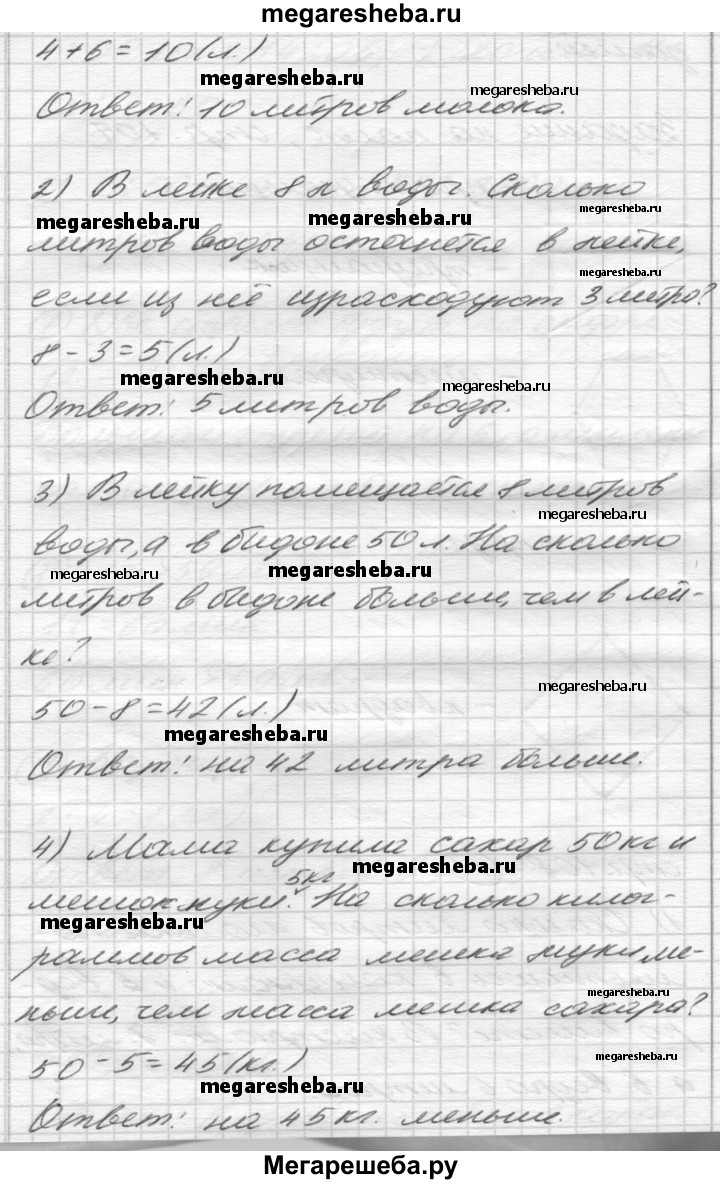 megaresheba.ru
4+6=10(л.)
megaresheba.ru
megaresheba.ru
Ответ: 10 литров молока.
2) В лейке 8 л воды. Сколько
megaresheba.ru
megaresheba.ru
megaresheba.ru
литров воды останется в лейке,
megaresheba.ru
если из неё израсходуют 3 литра?
8-3=5(л.)
megaresheba.ru
megaresheba.ru
Ответ: 5 литров воды.
3) В лейку помещается 8 литров
megaresheba.ru
воды, а в бидоне 50 л. На сколько
megaresheba.ru
megaresheba.ru
литров в бидоне больше, чем в лей-
ке?
megaresheba.ru
50-8=42(л.)
megaresheba.ru
Ответ: на 42 литра больше.
4) Мама купила сахар 50 кг и
megaresheba.ru
мешок муки 5кг. На сколько килог-
megaresheba.ru
раммов масса мешка муки, ме-
megaresheba.ru
ньше, чем масса мешка сахара?
50-5=45(кг.)
megaresheba.ru
megaresheba.ru
Ответ: на 45 кг. меньше.
Мегарешеба.ру